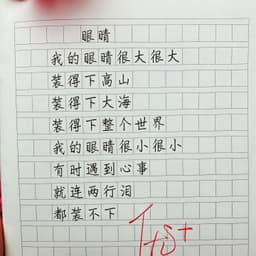 眼睛
我的眼睛很大很大
装得下高山
装得下大海
装得下整个世界
我的眼睛很小很小
有时遇到心事
就连两行泪
都装不下